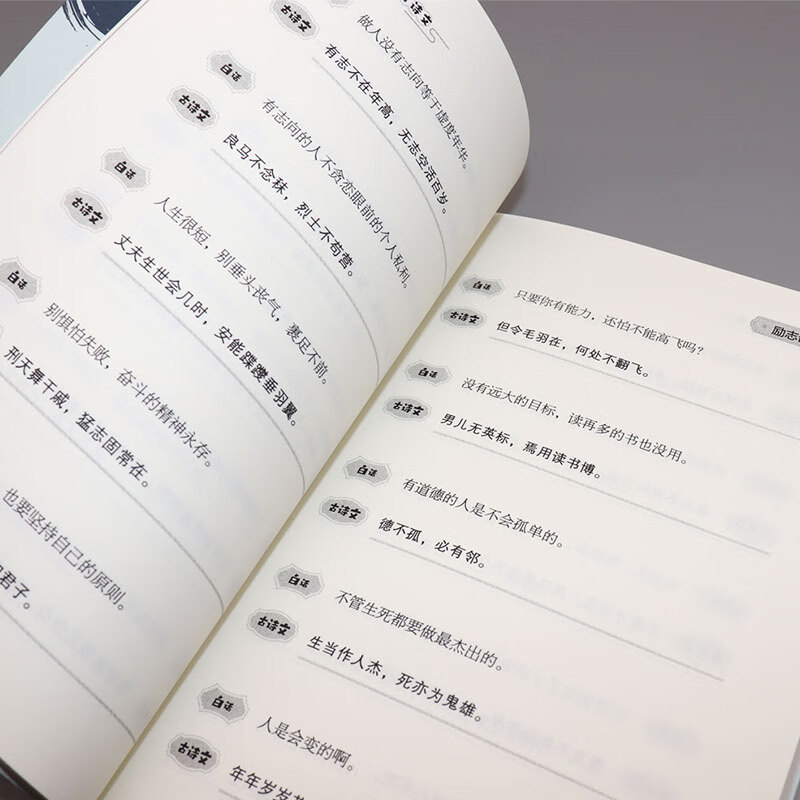 古诗文
古诗文
做人没有志向等于虚度年华。
有志不在年高，无志空活百岁。
白话
有志向的人不贪恋眼前的个人私利。
古诗文
良马不念秣，烈士不苟营。
白话
人生很短，别垂头丧气，裹足不前。
古诗文
丈夫生世会几时，安能蹀躞垂羽翼。
白话
别惧怕失败，奋斗的精神永存。
刑天舞干戚，猛志固常在。
也要坚持自己的原则。
君子。
励志
白话
只要你有能力，还怕不能高飞吗？
古诗文
但令毛羽在，何处不翻飞。
白话
没有远大的目标，读再多的书也没用。
古诗文
男儿无英标，焉用读书博。
白话
有道德的人是不会孤单的。
古诗文
德不孤，必有邻。
白话
不管生死都要做最杰出的。
古诗文
生当作人杰，死亦为鬼雄。
白话
人是会变的啊。
古诗文
年年岁岁